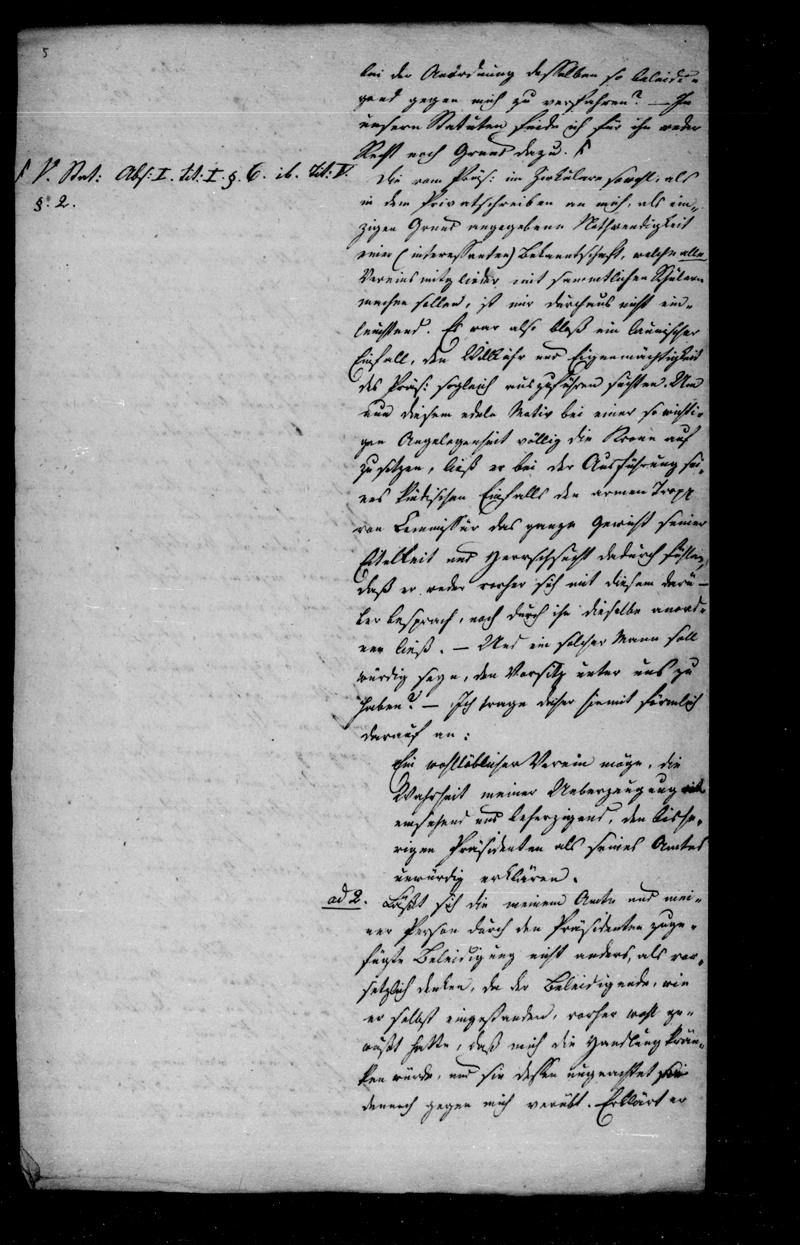 5
bei der Anordnung desselben so beleidi-
gend gegen mich zu verfahren? — In
unsern Statuten finde ich für ihn weder
Recht noch Grund dazu. ſ
ſ V. Stat: Abs: I. tit: I. §. 6. it. Tit: V.
§. 2.
Die vom Präs: im Zirkulare sowohl, als
in dem Privatschreiben an mich, als ein-
zigen Grund angegebene Nothwendigkeit
einer (interessanten) Bekanntschaft, welche alle
Vereinsmitglieder mit sammtlichen Schülern
machen sollen, ist mir durchaus nicht ein-
leuchtend. Es war also bloß ein launischer
Einfall, den Willkühr und Eigenmächtigkeit
des Präs: sogleich auszuführen suchten. Um
nun diesem edeln Motiv bei einer so wichti-
gen Angelegenheit völlig die Krone auf
zusetzen, ließ er bei der Ausführung sei-
nes kindischen Einfalls den armen Tropf
von Commissär das ganze Gewicht seiner
Eitelkeit und Herrschsucht dadurch fühlen,
daß er weder vorher sich mit diesem darü-
ber besprach, noch durch ihn dieselbe anord-
nen ließ. — Und ein solcher Mann soll
würdig seyn, den Vorsitz unter uns zu
haben? — Ich trage daher hiemit förmlich
darauf an:
Ein wohllöblicher Verein möge, die
Wahrheit meiner Ueberzeugung
einsehend und beherzigend, den bishe-
rigen Präsidenten als seines Amtes
unwürdig erklären.
ad 2. Läßt sich die meinem Amte und mei-
ner Person durch den Präsidenten zuge-
fügte Beleidigung nicht anders, als vor-
setzlich denken, da der Beleidigende, wie
er selbst eingestanden, vorher wohl ge-
wußt hatte, daß mich die Handlung krän-
ken würde, und sie dessen ungeachtet
dennoch gegen mich verübt. Erklärt er